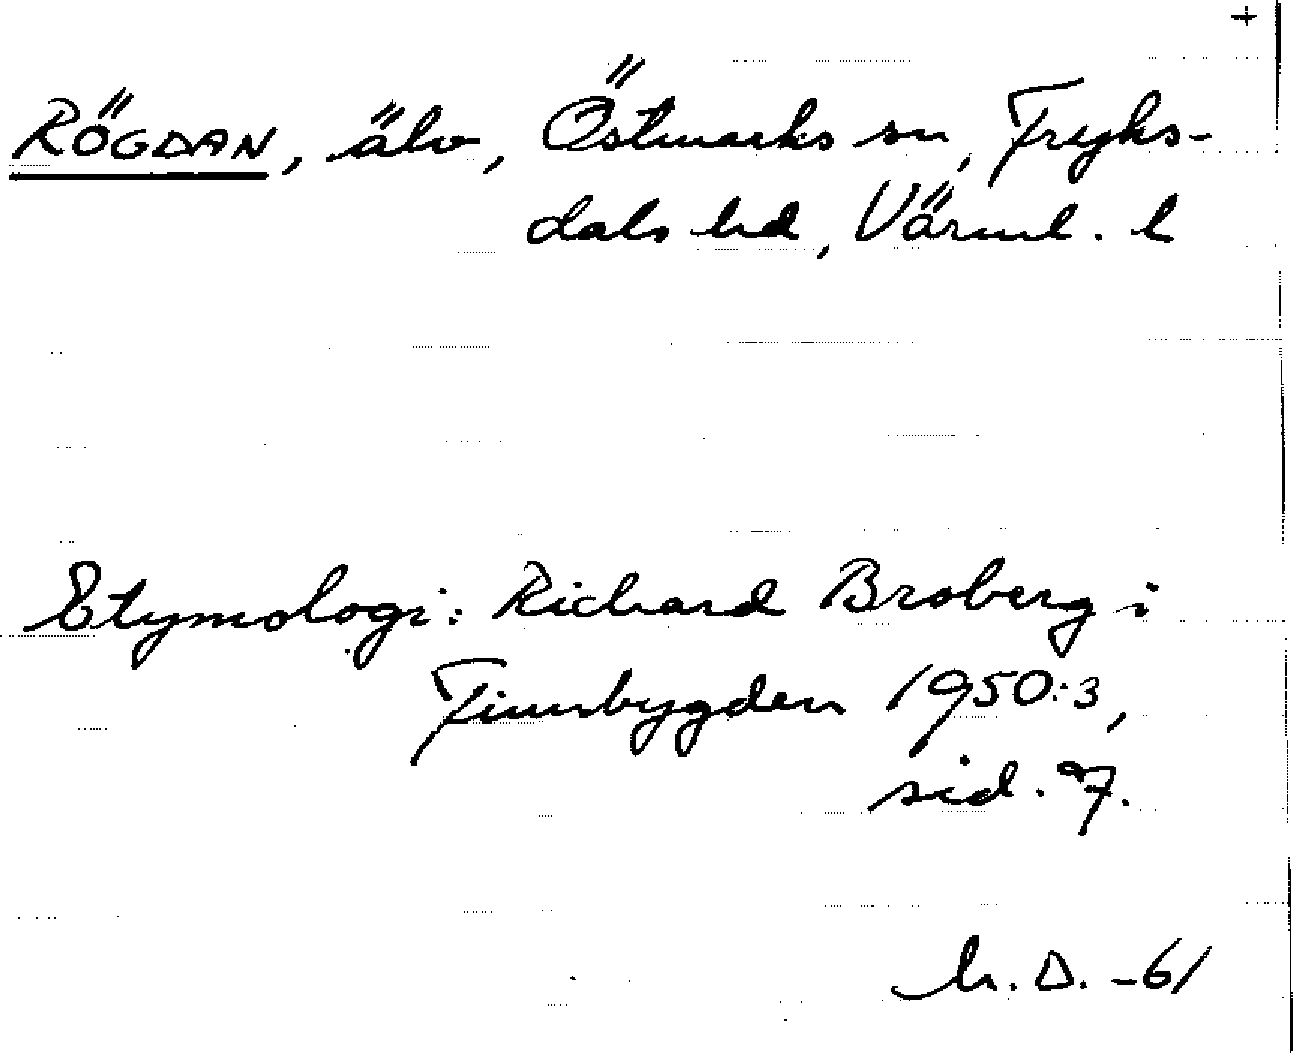 +
RÖGDAN, älv, Östmarks sn, Fryks-
dals hd, Värml. l
Etymologi: Richard Broberg i
Finnbygden 1950:3,
sid. 7.
h. D. -61